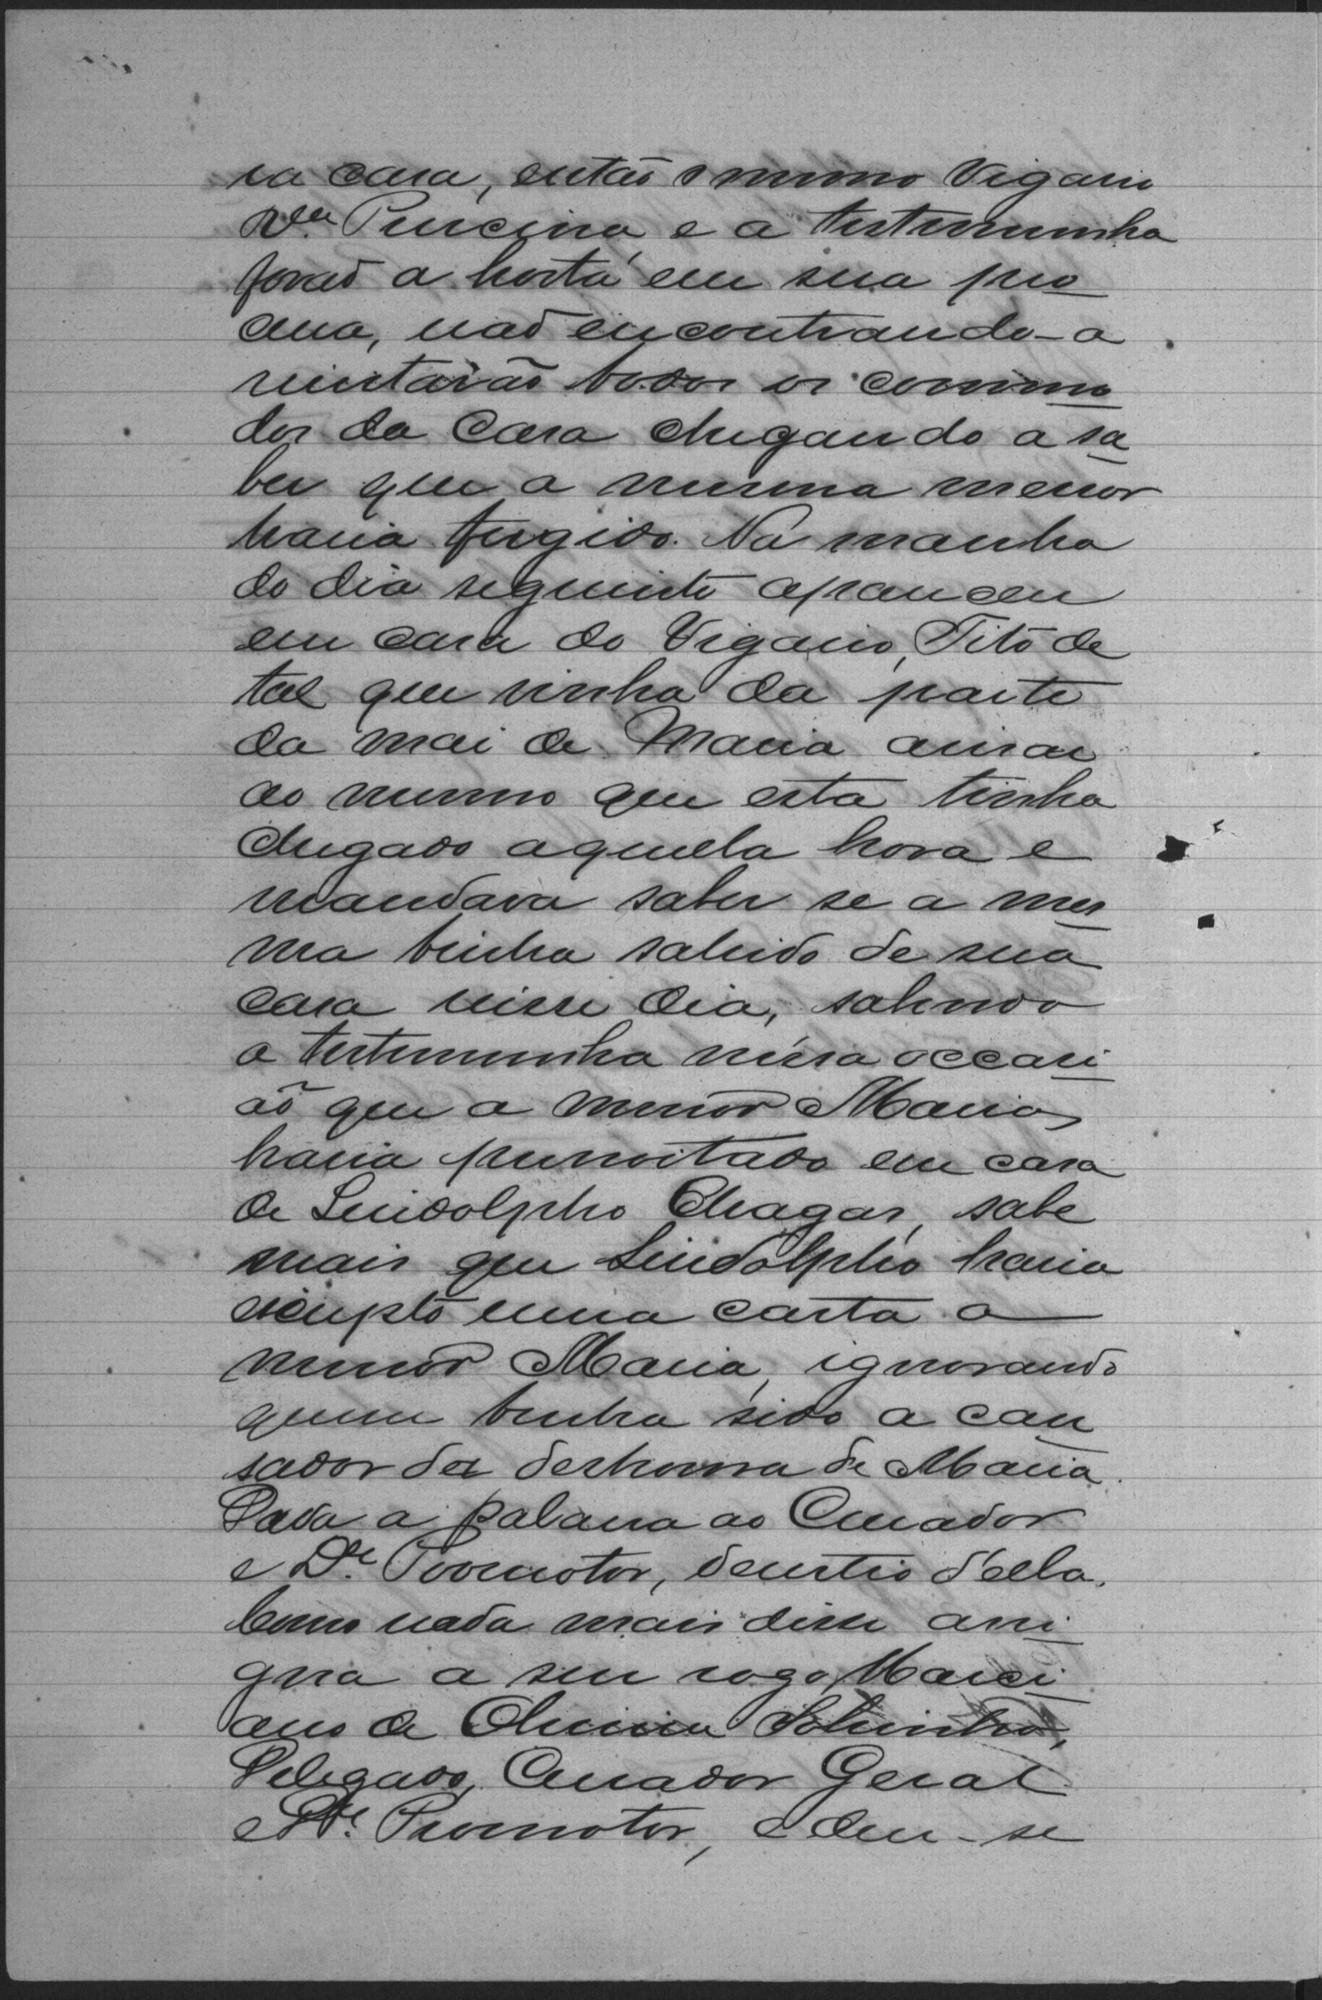 sa casa, então o mesmo Vigario
D.ª Pulcina e a testemunha
forão a horta em sua pro
cura, não encontrando-a
revistarão todos os commo
dos da casa chegando a sa
ber que a mesma menor
havia fugido. Na manha
do dia seguinte appareceu
em casa do Vigario, Tito de
tal que vinha da parte
da mai de Maria avisar
ao mesmo que esta tinha
chegado aquella hora e
mandava saber se a mes
ma tinha sahido de sua
casa nesse dia, sabendo
a testemunha nessa occasi
aõ que a menor Maria
havia pernoitado em casa
de Lindolpho Chagas, sabe
mais que Lindolpho havia
escripto uma carta a
menor Maria, ignorando
quem tenha sido a cau
sador da deshonra de Maria.
Dada a palavra ao Curador
e Dr. Promotor, desistio d'ella.
Como nada mais disse assi
gna a seu rogo, Marci
ano de Oliveira Sobrinho,
Delegado, Curador Geral
e Dr. Promotor, e deu-se